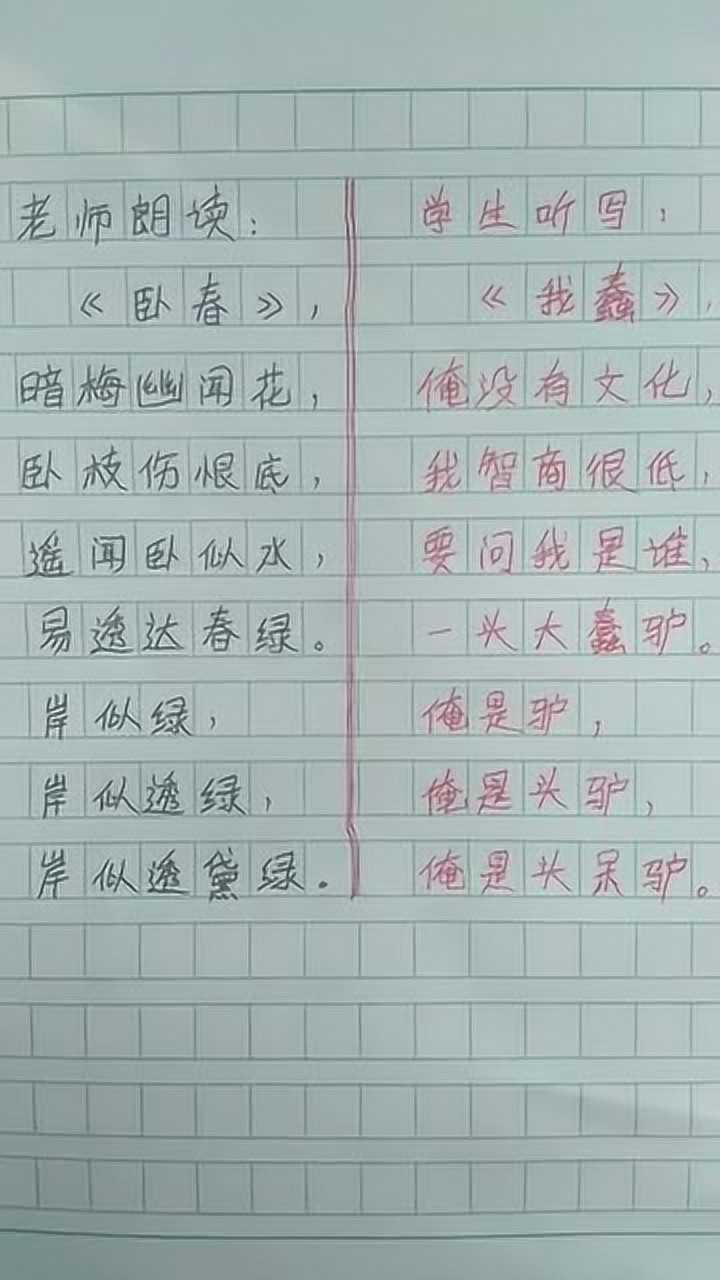 老师朗读:
《卧春》,
暗梅幽闻花,
卧枝伤恨底,
遥闻卧似水,
易透达春绿。
岸似绿,
岸似透绿,
岸似透黛绿。
学生听写:
《我蠢》,
俺没有文化,
我智商很低,
要问我是谁,
一头大蠢驴。
俺是驴,
俺是头驴,
俺是头呆驴。